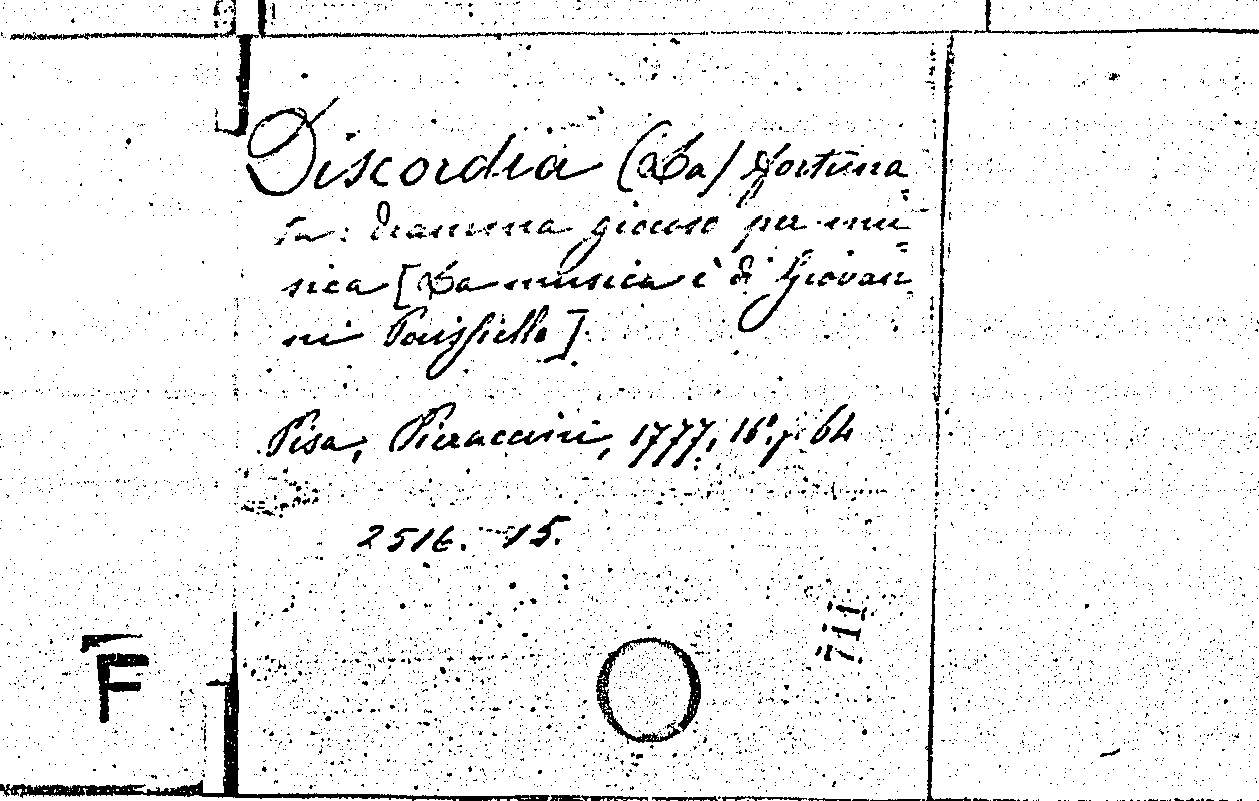 Discordia (La) fortuna=
ta: dramma giocoso per mu=
sica [La musica è di Giovan=
ni Paissiello]
Pisa, Pieraccini, 1777, 16°. p. 64
2516. 15.
F